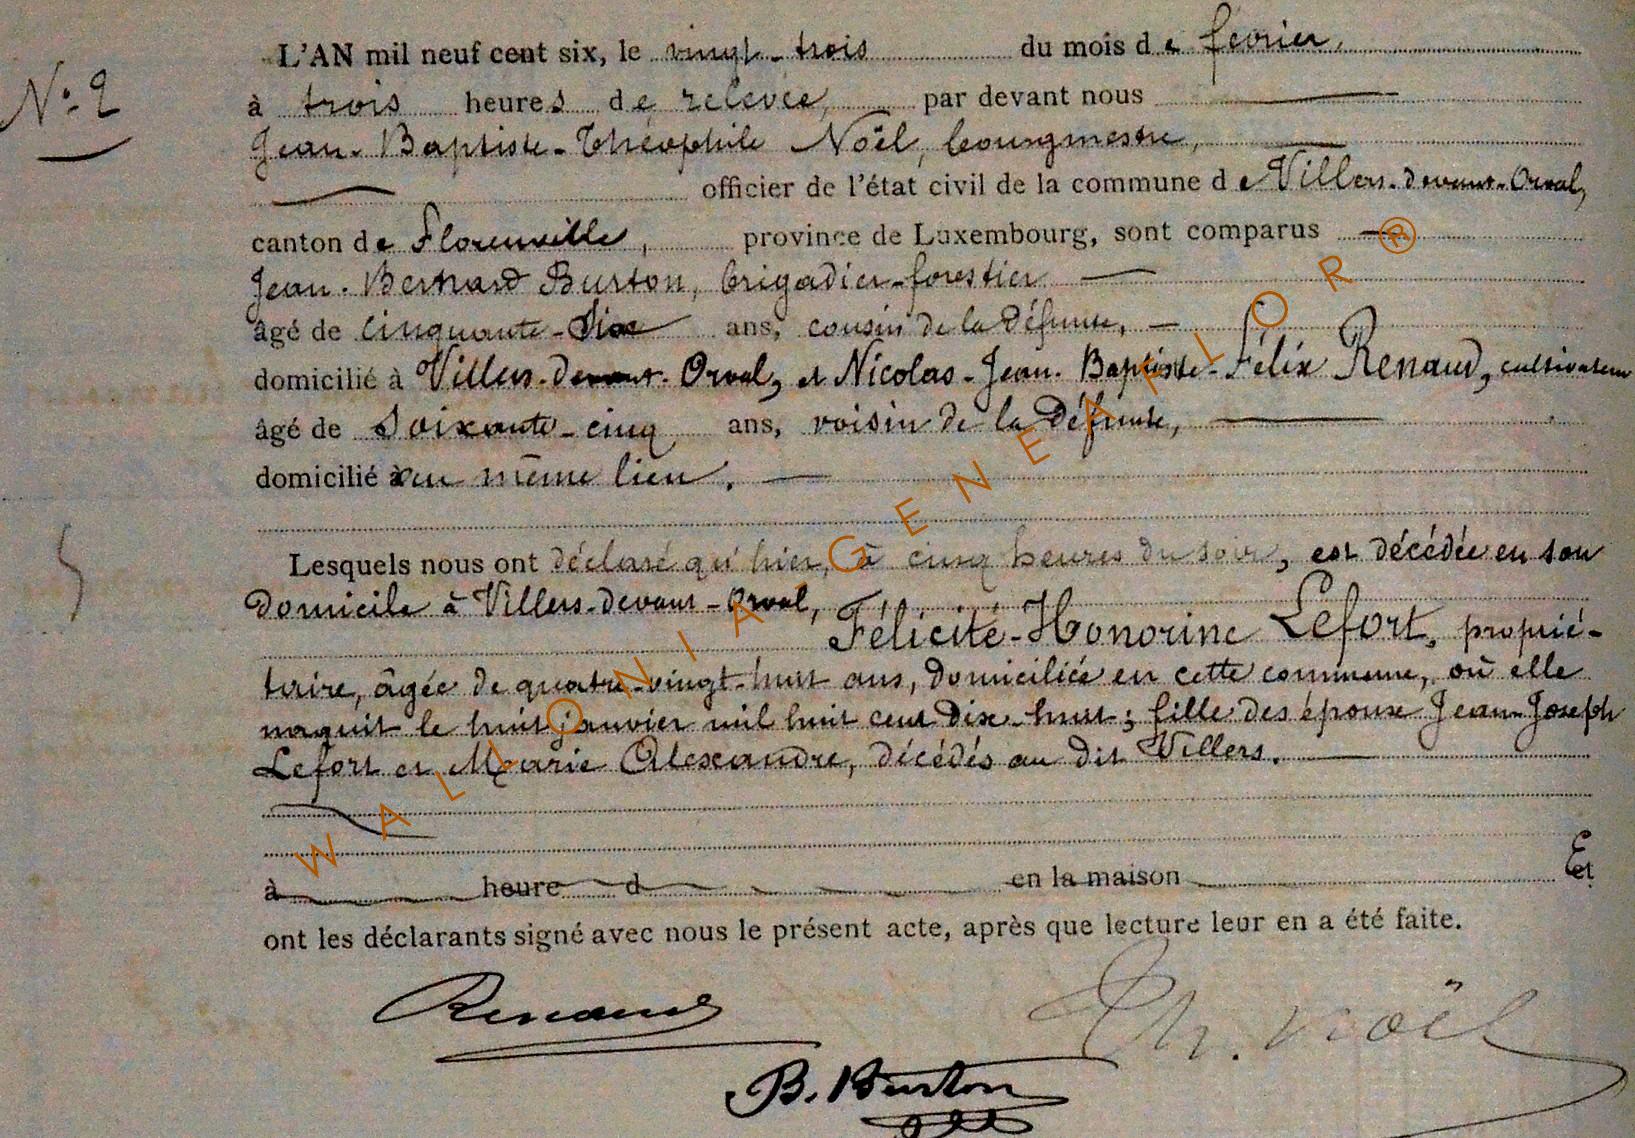 N° 2
L'AN mil neuf cent six, le vingt-trois du mois de février,
à trois heures de relevée, par devant nous
Jean-Baptiste-Théophile Noël, bourgmestre,
officier de l'état civil de la commune de Villers-devant-Orval,
canton de Florenville, province de Luxembourg, sont comparus
Jean-Bernard Burton, brigadier-forestier
âgé de cinquante-six ans, cousin de la défunte,
domicilié à Villers-devant-Orval, et Nicolas-Jean-Baptiste-Félix Renaud, cultivateur
âgé de soixante-cinq ans, voisin de la défunte,
domicilié au même lieu.
Lesquels nous ont déclaré qu'hier, à cinq heures du soir, est décédée en son
domicile à Villers-devant-Orval,
Félicité-Honorine Lefort, proprié-
taire, âgée de quatre-vingt-huit ans, domiciliée en cette commune, où elle
naquit le huit janvier mil huit cent dix-huit; fille des époux Jean-Joseph
Lefort et Marie Alexandre, décédés au dit Villers.
à heure d en la maison Et
ont les déclarants signé avec nous le présent acte, après que lecture leur en a été faite.
Renaud
Th. Noël
B. Burton
WALLONIA-GENEAFLOR®